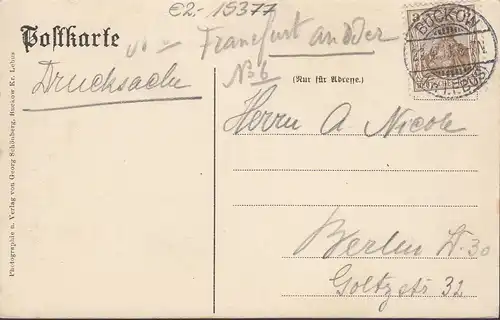 €2.- 15377
Postkarte
Frankfurt an dder
No 6
Drucksache
(Nur für Adresse.)
BUCKOW
Herrn A Nicole
Berlin W. 30
Goltzstr 32
Photographie u. Verlag von Georg Schönberg, Buckow Kr. Lebus